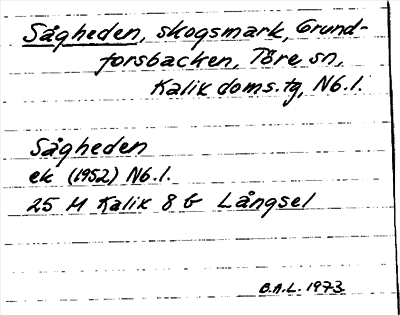 Sågheden, skogsmark, Grund-
forsbacken, Töre sn,
Kalix doms.tg, Nb.l.
Sågheden
ek (1952) Nb.l.
25 M Kalix 8 b Långsel
B.A.L. 1973